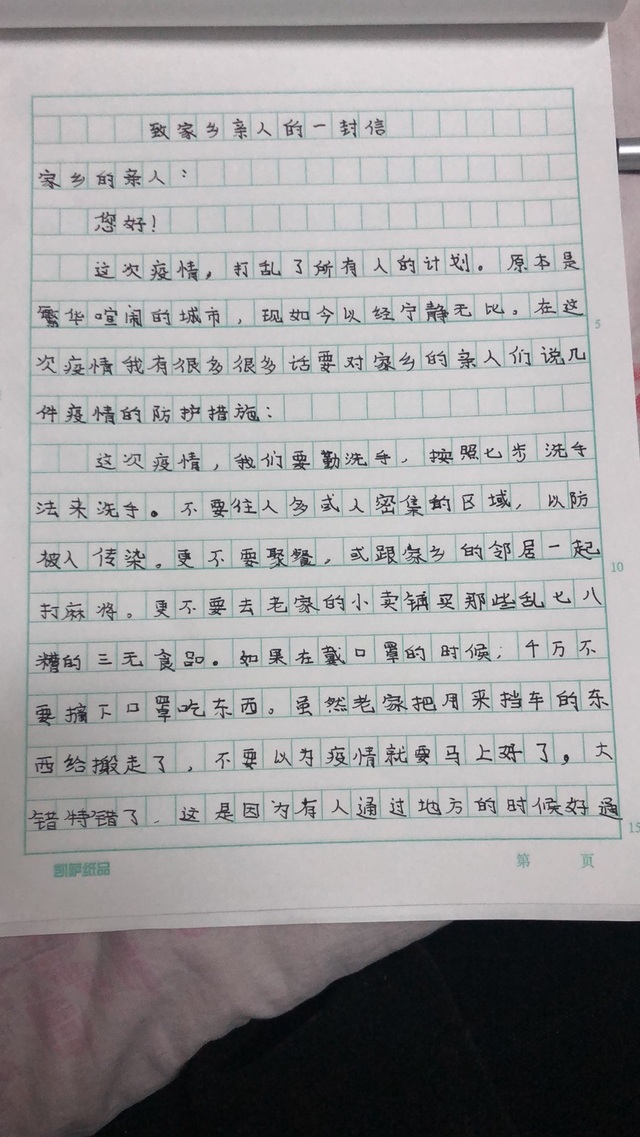 致家乡亲人的一封信
家乡的亲人：
您好！
这次疫情，打乱了所有人的计划。原本是
繁华喧闹的城市，现如今以经宁静无比。在这
5
次疫情我有很多很多话要对家乡的亲人们说几
件疫情的防护措施：
这次疫情，我们要勤洗手，按照七步洗手
法来洗手。不要往人多或人密集的区域，以防
被人传染。更不要聚餐，或跟家乡的邻居一起
10
打麻将。更不要去老家的小卖铺买那些乱七八
糟的三无食品。如果在戴口罩的时候；千万不
要摘下口罩吃东西。虽然老家把用来挡车的东
西给搬走了，不要以为疫情就要马上好了。大
错特错了，这是因为有人通过地方的时候好通
15
凯萨纸品
第 页